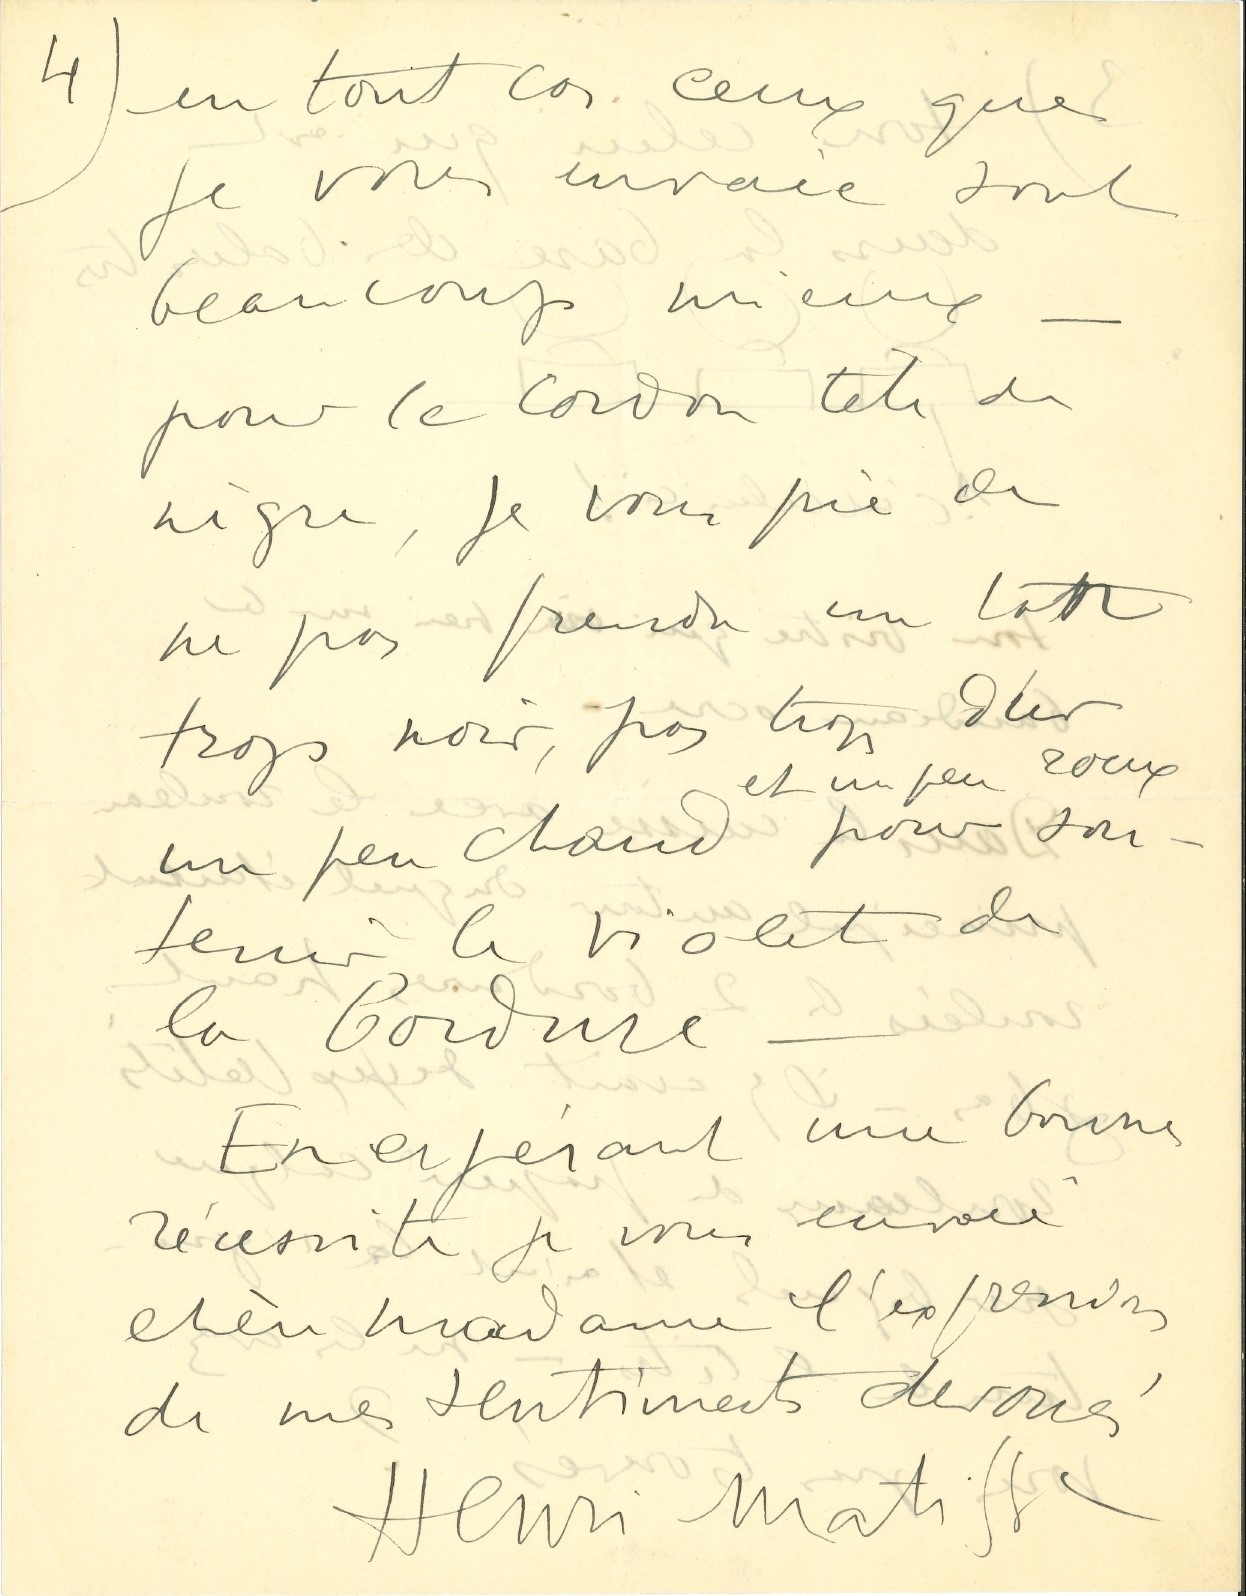 4) en tout cas ceux que
je vous envoie sont
beaucoup mieux —
pour le cordon tête de
nègre, je vous prie de
ne pas prendre un
trop noir, pas trop dur
et un peu roux
un peu chaud pour sou-
tenir le violet de
la Bordure —
En espérant une bonne
réussite je vous envoie
chère madame l'expression
de mes sentiments dévoués
Henri Matisse